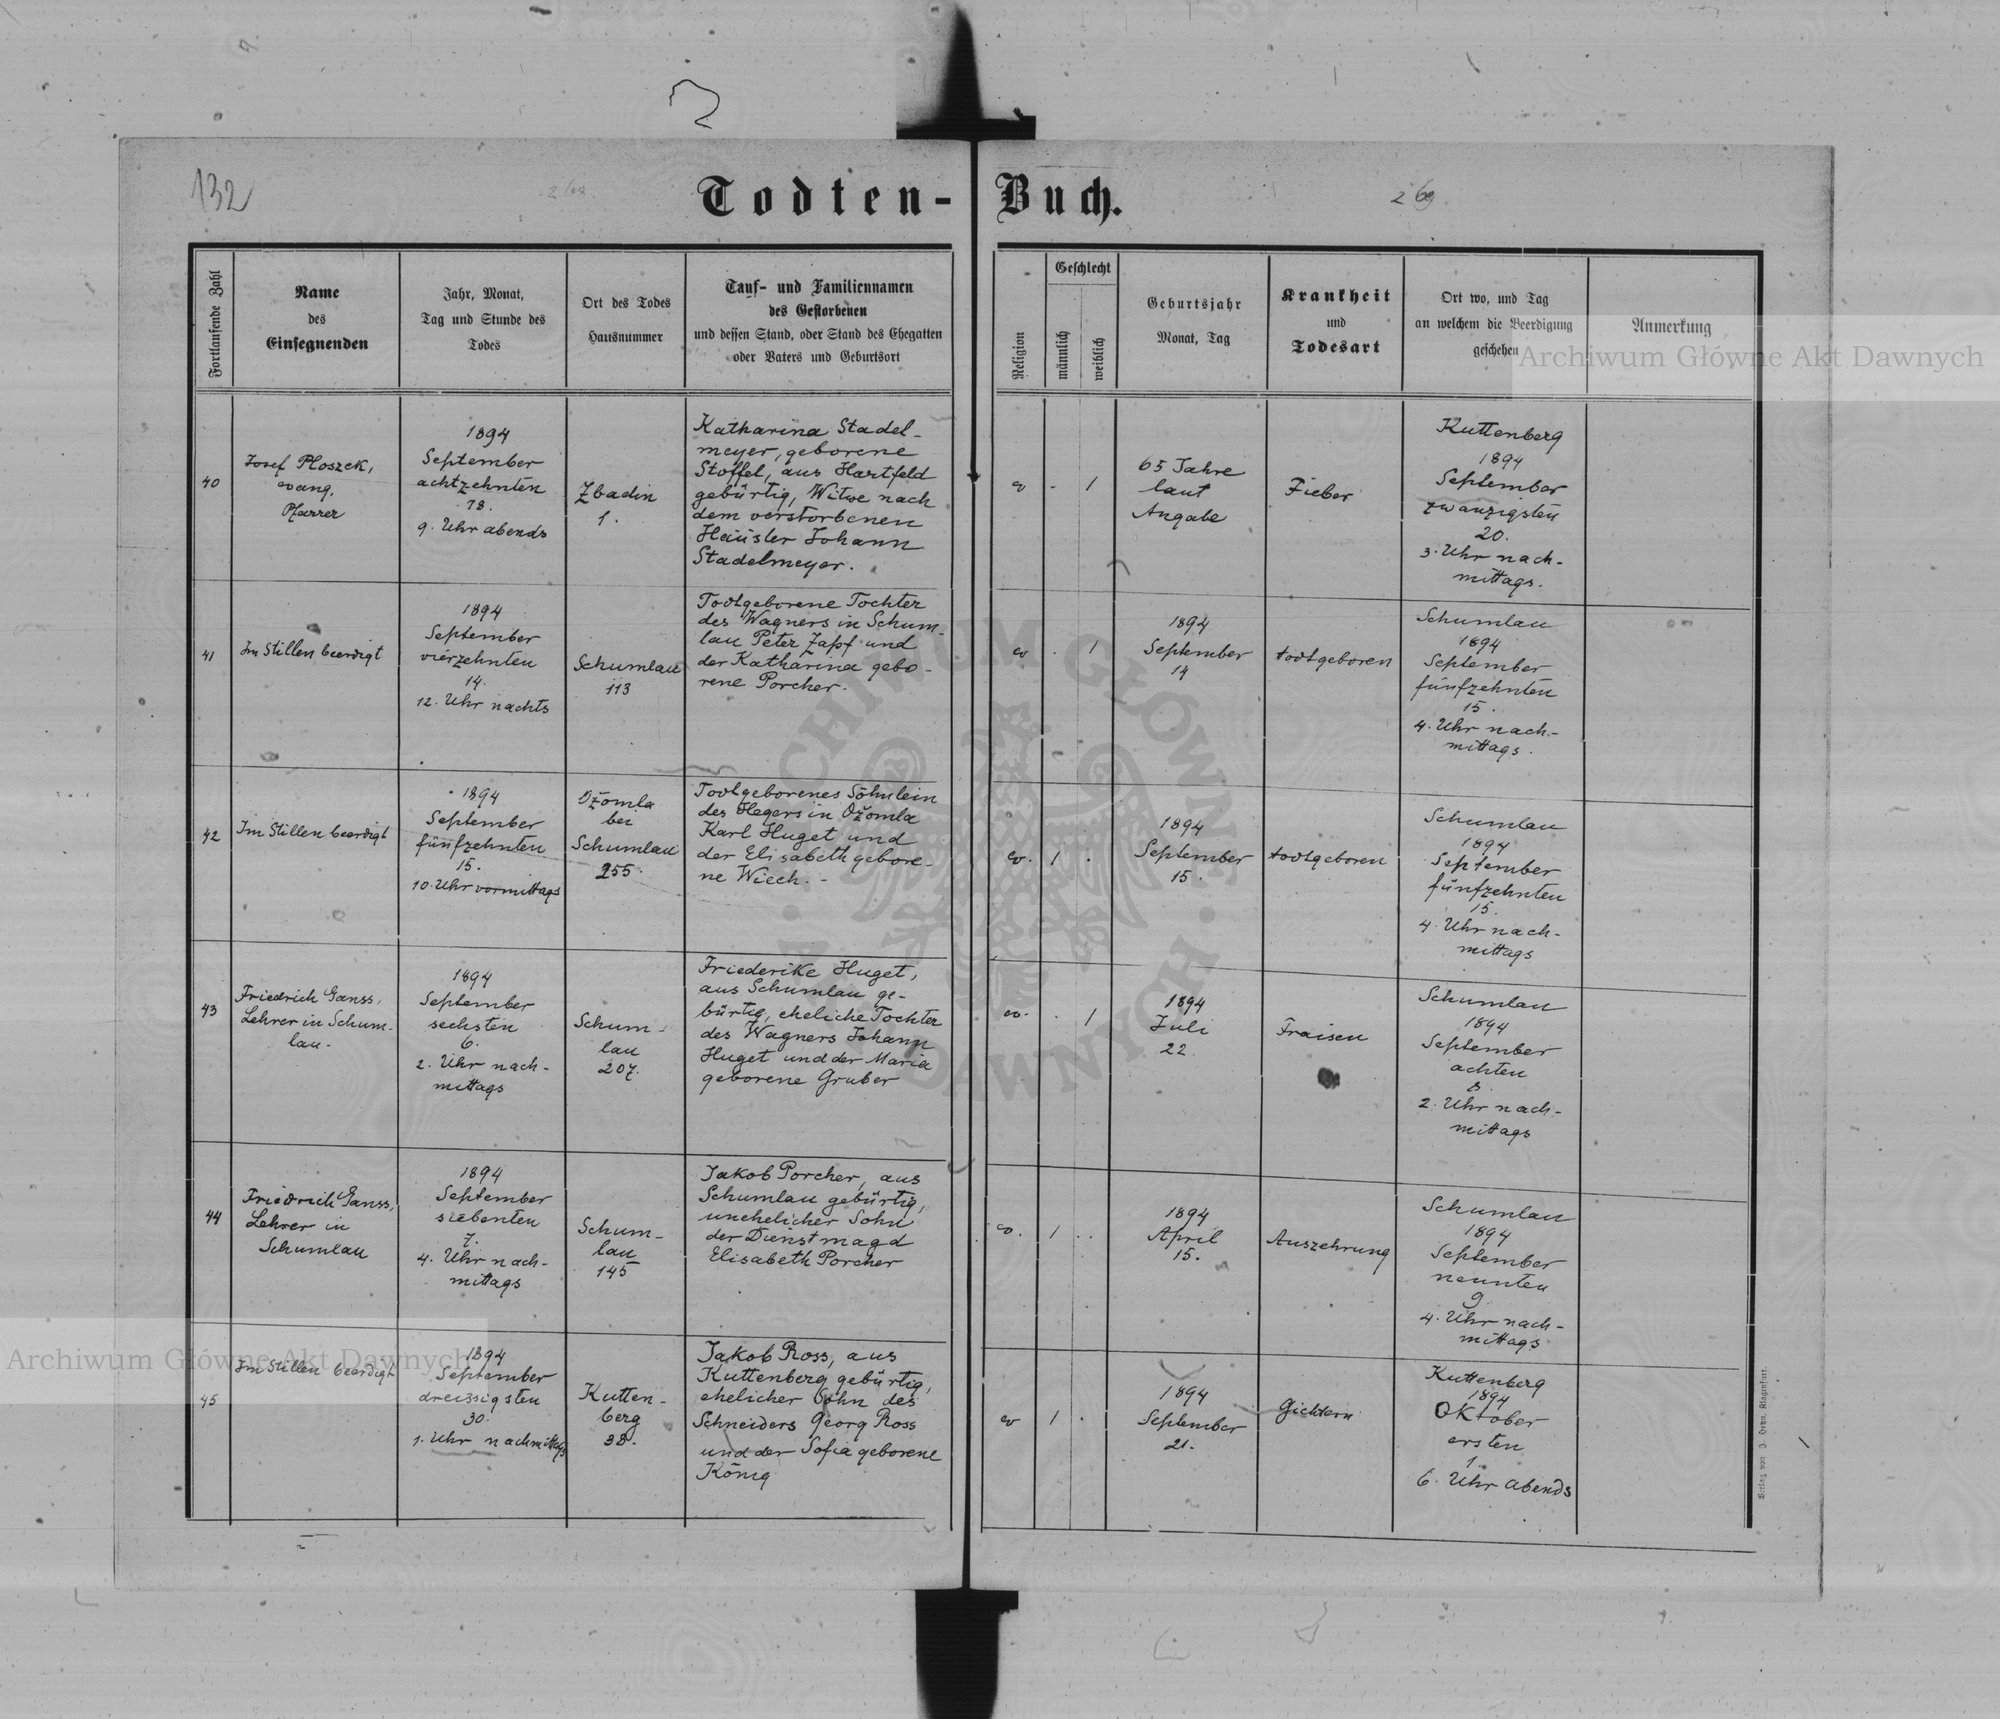 132
Todten-Buch.
Fortlaufende Zahl
Name
des
Einsegnenden
Jahr, Monat,
Tag und Stunde des
Todes
Ort des Todes
Hausnummer
Tauf- und Familiennamen
des Gestorbenen
und dessen Stand, oder Stand des Ehegatten
oder Vaters und Geburtsort
Religion
Geschlecht
männlich
weiblich
Geburtsjahr
Monat, Tag
Krankheit
und
Todesart
Ort wo, und Tag
an welchem die Beerdigung
geschehen
Anmerkung
Archiwum Główne Akt Dawnych
40
Josef Ploszek,
evang.
Pfarrer
1894
September
achtzehnten
18.
9. Uhr abends
Zbadin
1.
Katharina Stadel-
meyer, geborene
Stoffel, aus Hartfeld
gebürtig, Witwe nach
dem verstorbenen
Häusler Johann
Stadelmeyer.
ev
- /
65 Jahre
laut
Angabe
Fieber
Kuttenberg
1894
September
zwanzigsten
20.
3. Uhr nach-
mittags.
41
Im Stillen beerdigt
1894
September
vierzehnten
14.
12. Uhr nachts
Schumlau
113
Todtgeborene Tochter
des Wagners in Schum-
lau Peter Zapf und
der Katharina gebo-
rene Porcher.
ev
. /
1894
September
14
todtgeboren
Schumlau
1894
September
fünfzehnten
15.
4. Uhr nach-
mittags.
42
Im Stillen beerdigt
1894
September
fünfzehnten
15.
10. Uhr vormittags
Ožomla
bei
Schumlau
255.
Todtgeborenes Söhnlein
des Hegers in Ožomla
Karl Huget und
der Elisabeth gebore-
ne Wiech. -
ev.
/ .
1894
September
15.
todtgeboren
Schumlau
1894
September
fünfzehnten
15.
4. Uhr nach-
mittags
43
Friedrich Ganss,
Lehrer in Schum-
lau.
1894
September
sechsten
6.
2. Uhr nach-
mittags
Schum-
lau
207.
Friederike Huget,
aus Schumlau ge-
bürtig, eheliche Tochter
des Wagners Johann
Huget und der Maria
geborene Gruber
ev.
. /
1894
Juli
22.
Fraisen
Schumlau
1894
September
achten
8.
2. Uhr nach-
mittags
44
Friedrich Ganss,
Lehrer in
Schumlau
1894
September
siebenten
7.
4. Uhr nach-
mittags
Schum-
lau
145
Jakob Porcher, aus
Schumlau gebürtig,
unehelicher Sohn
der Dienstmagd
Elisabeth Porcher
ev.
/ .
1894
April
15.
Auszehrung
Schumlau
1894
September
neunten
9
4. Uhr nach-
mittags
45
Im Stillen beerdigt
1894
September
dreissigsten
30.
1. Uhr nachmittags
Kutten-
berg
38.
Jakob Ross, aus
Kuttenberg gebürtig,
ehelicher Sohn des
Schneiders Georg Ross
und der Sofia geborene
König
ev
/ .
1894
September
21.
Gichtern
Kuttenberg
1894
Oktober
ersten
1.
6. Uhr abends
Archiwum Główne Akt Dawnych
ARCHIWUM GŁÓWNE AKT DAWNYCH